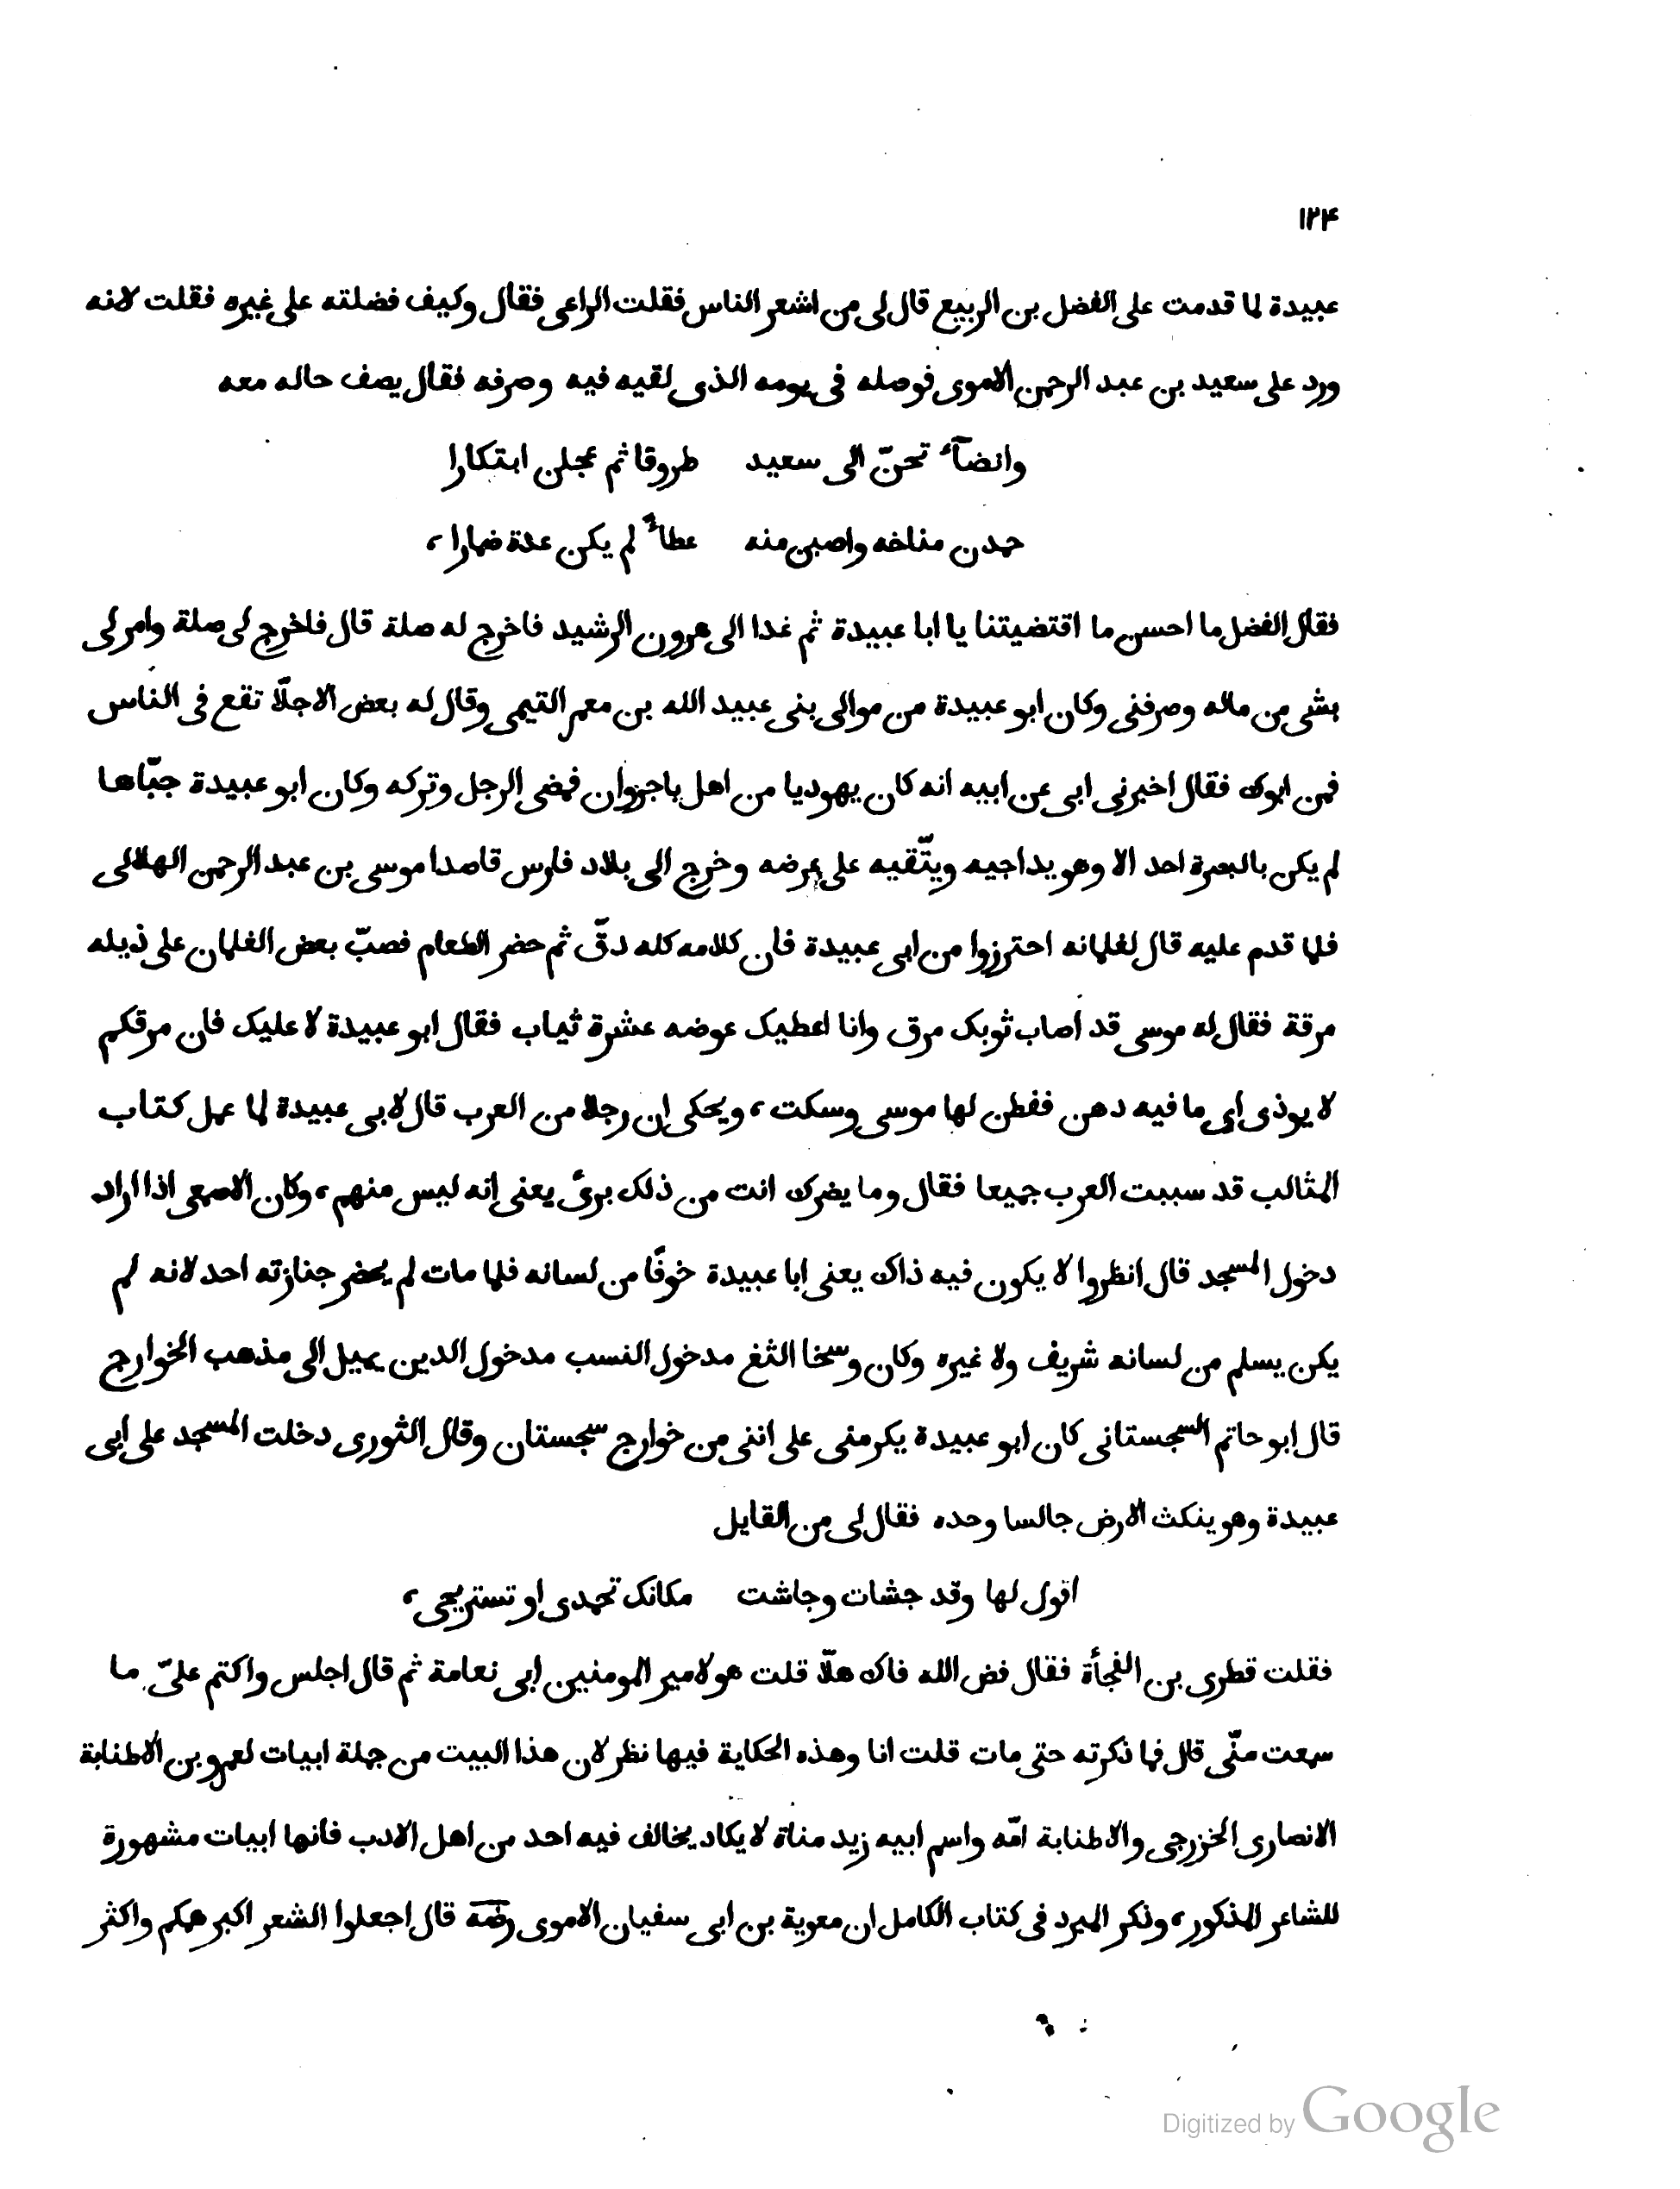 ١٢۴
عبيدة لما قدمت على الفضل بن الربيع قال لى من اشعر الناس فقلت الراعى فقال وكيف فضلته على غيره فقلت لانه
ورد على سعيد بن عبد الرحمن الاموى فوصله فى يومه الذى لقيه فيه وصرفه فقال يصف حاله معه
وانضآء تحنّ الى سعيد طروقا ثم عجلن ابتكارا
حمدن مناخه واصبن منه عطاءً لم يكن عدة ضمارا ،
فقال الفضل ما احسن ما اقتضيتنا يا ابا عبيدة ثم غدا الى هرون الرشيد فاخرج له صلة قال فاخرج لى صلة وامر لى
بشى من ماله وصرفنى وكان ابو عبيدة من موالى بنى عبيد الله بن معمر التيمى وقال له بعض الاجلّا تقع فى الناس
فمن ابوك فقال اخبرنى ابى عن ابيه انه كان يهوديا من اهل باجزوان فمضى الرجل وتركه وكان ابو عبيدة جبّاها
لم يكن بالبصرة احد الا وهو يداجيه ويتّقيه على عرضه وخرج الى بلاد فارس قاصدا موسى بن عبد الرحمن الهلالى
فلما قدم عليه قال لغلمانه احترزوا من ابى عبيدة فان كلامه كله دقّ ثم حضر الطعام فصبّ بعض الغلمان على ذيله
مرقة فقال له موسى قد اصاب ثوبك مرق وانا اعطيك عوضه عشرة ثياب فقال ابو عبيدة لا عليك فان مرقكم
لا يوذى اى ما فيه دهن ففطن لها موسى وسكت ، ويحكى ان رجلا من العرب قال لابى عبيدة لما عمل كتاب
المثالب قد سببت العرب جميعا فقال وما يضرك انت من ذلك برىٔ يعنى انه ليس منهم ، وكان الاصمعى اذا اراد
دخول المسجد قال انظروا لا يكون فيه ذاك يعنى ابا عبيدة خوفًا من لسانه فلما مات لم يحضر جنازته احد لانه لم
يكن يسلم من لسانه شريف ولا غيره وكان وسخا الثغ مدخول النسب مدخول الدين يميل الى مذهب الخوارج
قال ابو حاتم السجستانى كان ابو عبيدة يكرمنى على اننى من خوارج سجستان وقال الثورى دخلت المسجد على ابى
عبيدة وهو ينكث الارض جالسا وحده فقال لى من القايل
اقول لها وقد جشات وجاشت مكانك تحمدى او تستريحى ،
فقلت قطرى بن الفجأة فقال فض الله فاك هلّا قلت هو لامير المومنين ابى نعامة ثم قال اجلس واكتم علىّ ما
سمعت منّى قال فما ذكرته حتى مات قلت انا وهذه الحكاية فيها نظر لان هذا البيت من جملة ابيات لعمرو بن الاطنابة
الانصارى الخزرجى والاطنابة امّه واسم ابيه زيد مناة لا يكاد يخالف فيه احد من اهل الادب فانها ابيات مشهورة
للشاعر المذكور ، وذكر المبرد فى كتاب الكامل ان معوية بن ابى سفيان الاموى رضه قال اجعلوا الشعر اكبر همكم واكثر
Digitized by Google